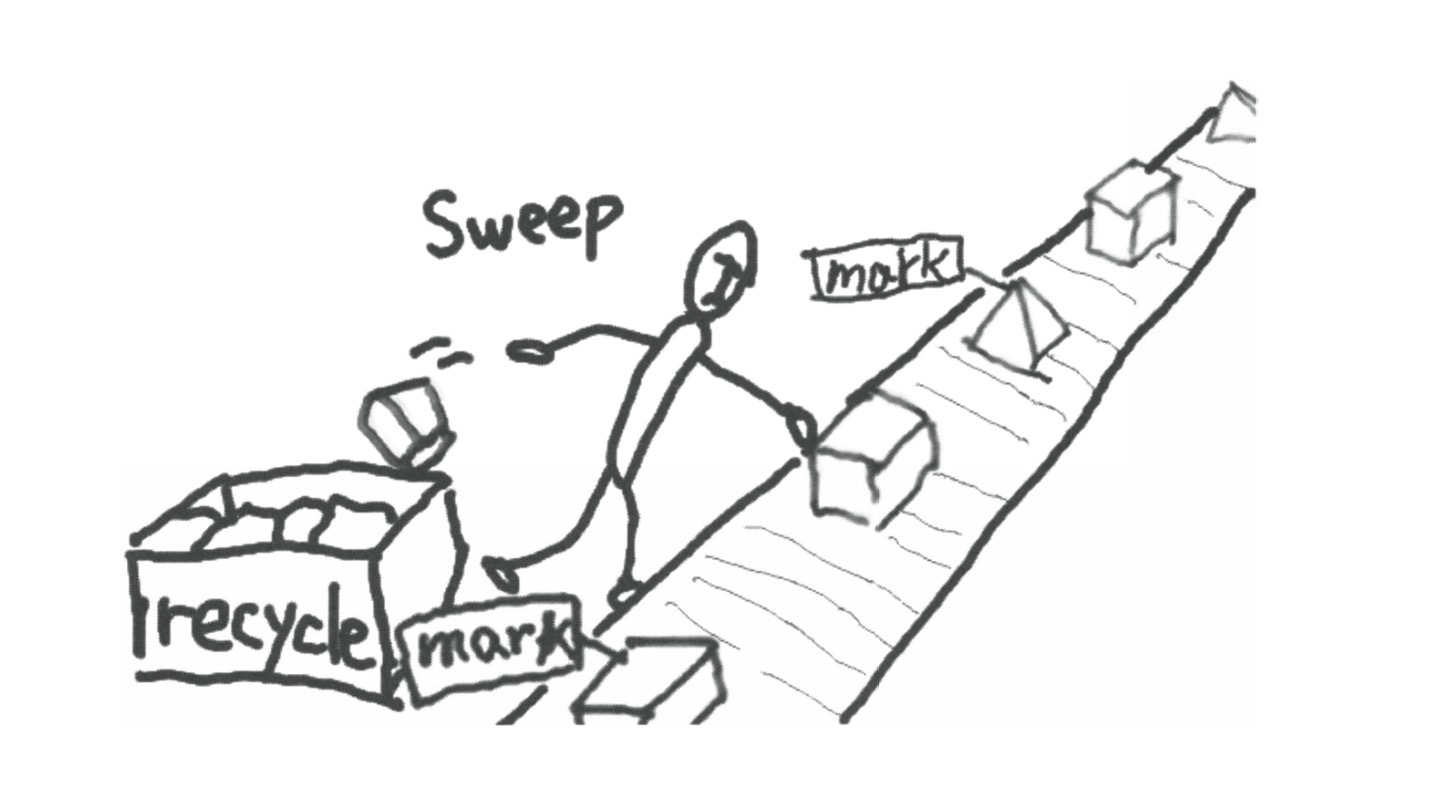 Sweep
mark
recycle
mark